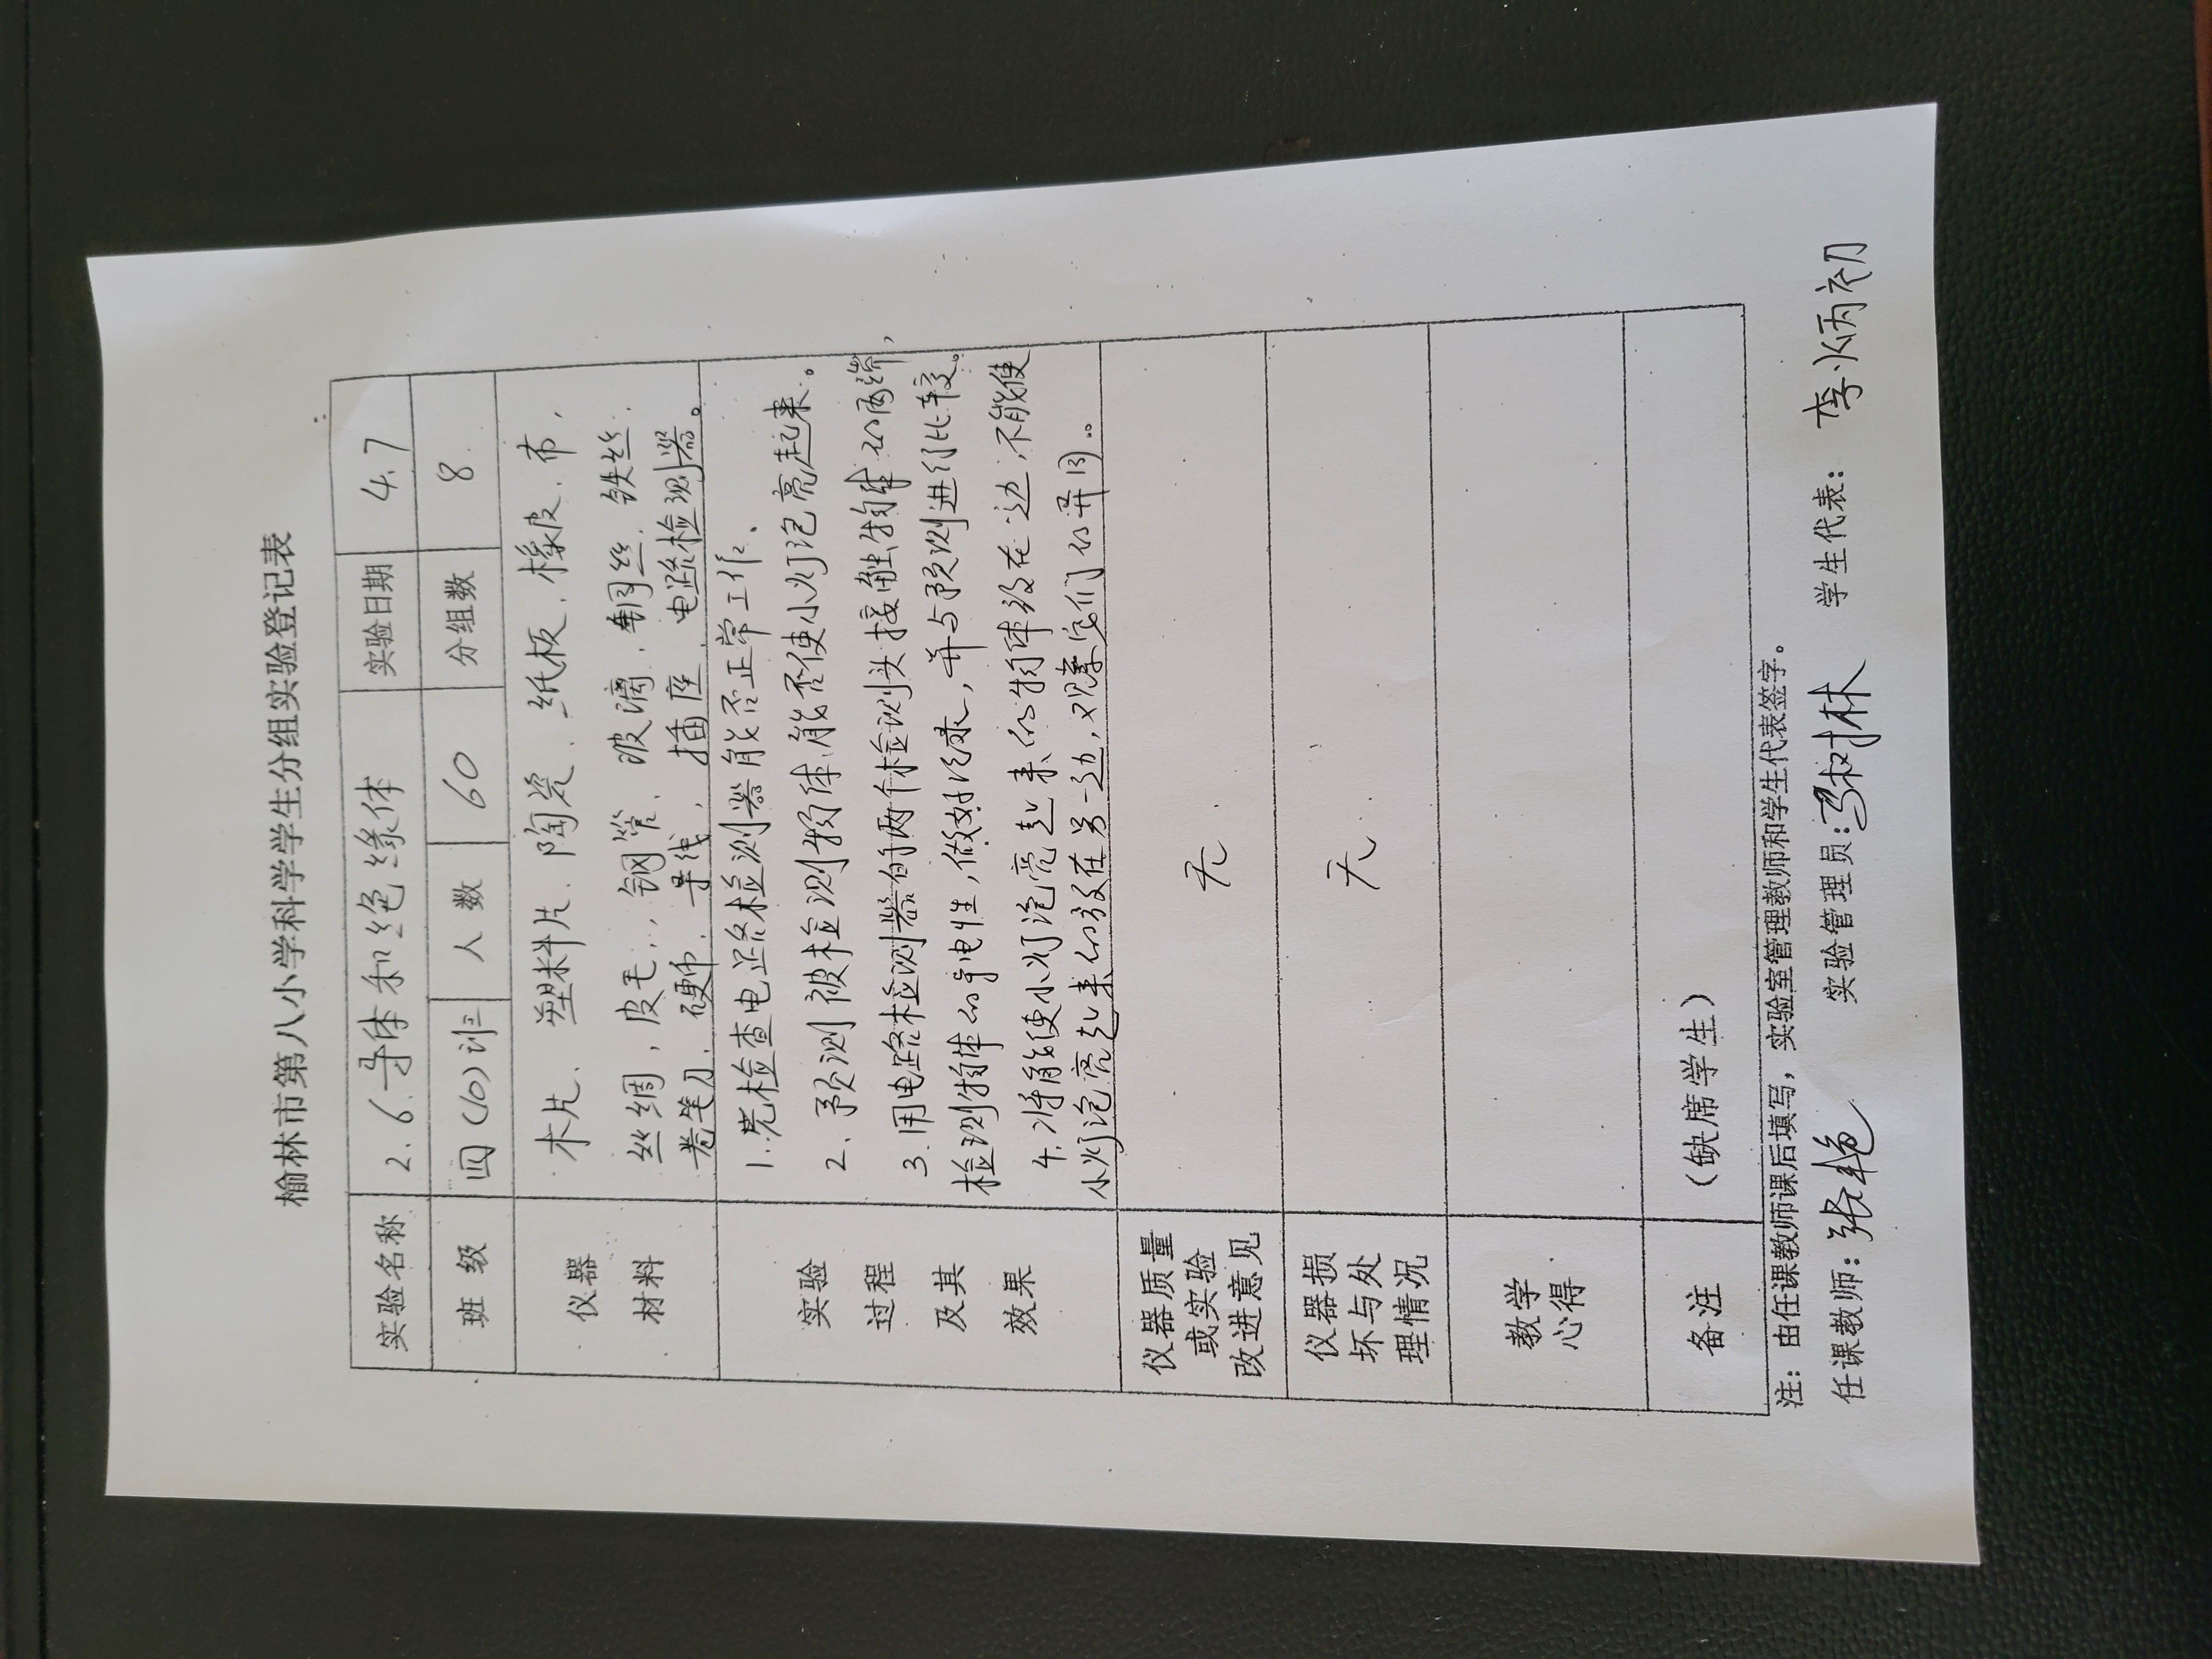 榆林市第八小学科学学生分组实验登记表
实验名称 2.6 导体和绝缘体 实验日期 4.7
班 级 四(10) 人 数 60 分组数 8
仪器 木片、塑料片、陶瓷、纸板、橡皮、布、
材料 丝绸,皮毛、钢管、玻璃、铜丝、铁丝、
卷笔刀、硬币、导线、插座、电路检测器。
实验 1.先检查电路检测器能否正常工作、
过程 2.预测被检测物体能否使小灯泡亮起来。
及其 3.用电路检测器的两个检测头接触物体的两端,
效果 检测物体的导电性,做好记录,并与预测进行比较。
4.将能使小灯泡亮起来的物体放在一边,不能使
小灯泡亮起来的放在另一边,观察它们的异同。
仪器质量
或实验 无
改进意见
仪器损
坏与处 无
理情况
教学
心得
备注 (缺席学生)
注:由任课教师课后填写,实验室管理教师和学生代表签字。
任课教师:张艳 实验管理员:树林 学生代表:李炳初